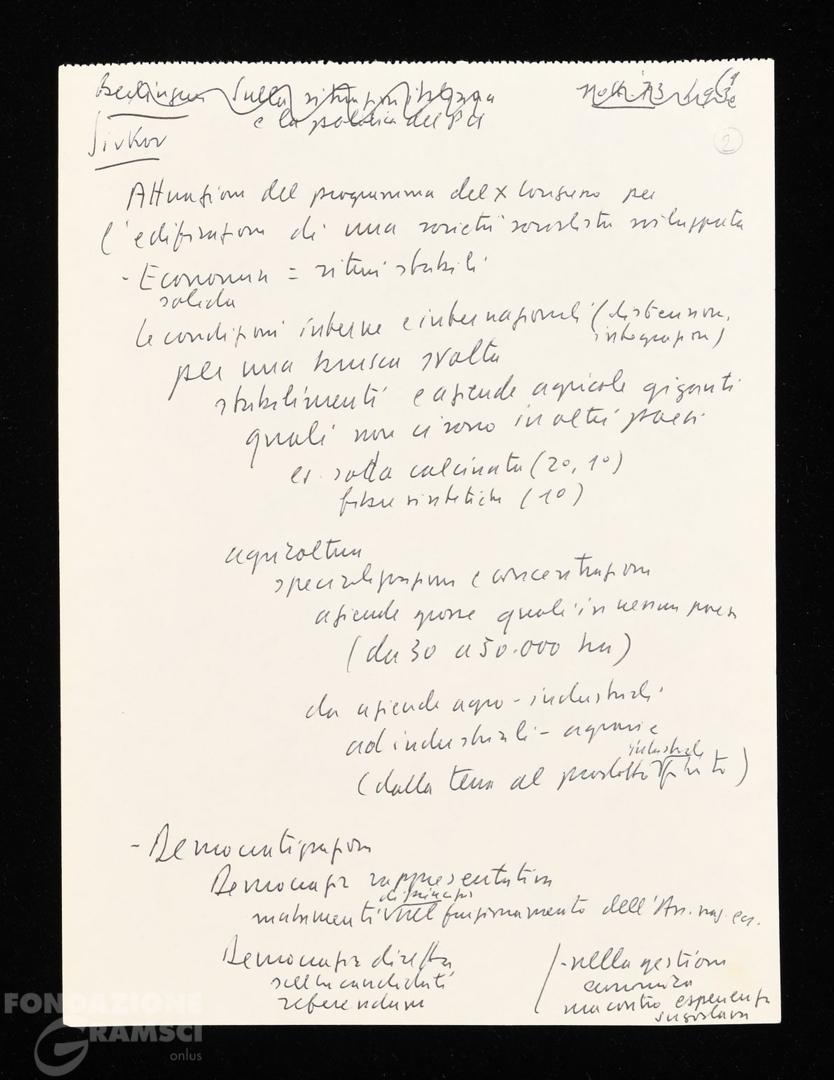 Berlinguer Sulla situazione italiana
e la politica del PCI
2
Sivkov
Attuazione del programma del X Congresso per
l'edificazione di una società socialista sviluppata
- Economia = ritmi stabili
solida
le condizioni interne e internazionali (distensione,
integrazione)
per una brusca svolta
stabilimenti e aziende agricole giganti
quali non ci sono in altri paesi
es. soda calcinata (20, 10)
fibre sintetiche (10)
agricoltura
specializzazione e concentrazione
aziende grosse quali in nessun paese
(da 30 a 50.000 ha)
da aziende agro-industriali
ad industriali-agrarie
industriale
(dalla terra al prodotto finito)
- Democratizzazione
Democrazia rappresentativa
di principio
mutamenti nel funzionamento dell'Ass. naz. ecc.
Democrazia diretta
sulle candidati
referendum
- nella gestione
economica
ma contro esperienza
jugoslava
FONDAZIONE
GRAMSCI
onlus